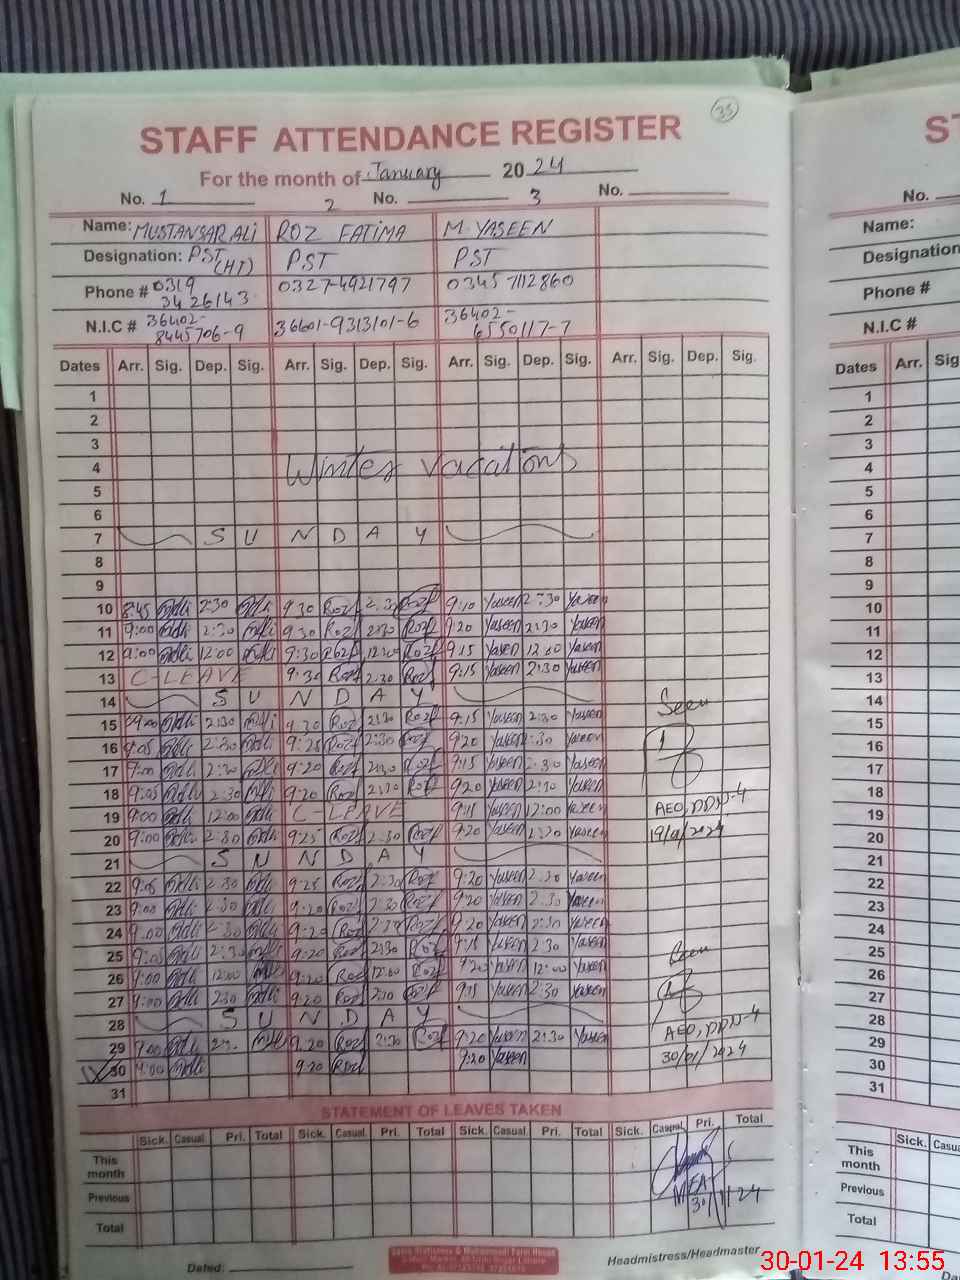 33
STAFF ATTENDANCE REGISTER
For the month of January 2024
No. 1 2 No. 3 No.
Name: MUSTANSAR ALI ROZ FATIMA M. YASEEN
Designation: PST (HT) PST PST
Phone # 0319 3426143 0327-4921797 0345 7112860
N.I.C # 36402-8445706-9 36601-9313101-6 36402-6550117-7
Dates Arr. Sig. Dep. Sig. Arr. Sig. Dep. Sig. Arr. Sig. Dep. Sig. Arr. Sig. Dep. Sig.
1
2
3
4 Winter vacations
5
6
7 SUNDAY
8
9
10 8:45 2:30 9:30 Rozf 2:30 Rozf 9:10 Yaseen 2:30 Yaseen
11 9:00 2:30 9:30 Rozf 2:30 Rozf 9:20 Yaseen 2:30 Yaseen
12 9:00 12:00 9:30 Rozf 12:00 Rozf 9:15 Yaseen 12:00 Yaseen
13 C-LEAVE 9:30 Rozf 2:30 Rozf 9:15 Yaseen 2:30 Yaseen
14 SUNDAY
15 9:00 2:30 9:20 Rozf 2:30 Rozf 9:15 Yaseen 2:30 Yaseen
16 9:05 2:30 9:25 Rozf 2:30 Rozf 9:20 Yaseen 2:30 Yaseen
17 9:00 2:30 9:20 Rozf 2:30 Rozf 9:15 Yaseen 2:30 Yaseen
18 9:05 2:30 9:20 Rozf 2:30 Rozf 9:20 Yaseen 2:30 Yaseen
19 9:00 12:00 C-LEAVE 9:15 Yaseen 12:00 Yaseen
20 9:00 2:30 9:25 Rozf 2:30 Rozf 9:20 Yaseen 2:30 Yaseen
21 SUNDAY
22 9:05 2:30 9:25 Rozf 2:30 Rozf 9:20 Yaseen 2:30 Yaseen
23 9:00 2:30 9:20 Rozf 2:30 Rozf 9:20 Yaseen 2:30 Yaseen
24 9:00 2:30 9:25 Rozf 2:30 Rozf 9:20 Yaseen 2:30 Yaseen
25 9:05 2:30 9:20 Rozf 2:30 Rozf 9:15 Yaseen 2:30 Yaseen
26 9:00 12:00 9:20 Rozf 12:00 Rozf 9:20 Yaseen 12:00 Yaseen
27 9:00 2:30 9:20 Rozf 2:30 Rozf 9:15 Yaseen 2:30 Yaseen
28 SUNDAY
29 9:00 9:20 Rozf 2:30 Rozf 9:20 Yaseen 2:30 Yaseen
30 9:00 9:20 Rozf 9:20 Yaseen
31
Seen
AEO, DDN-4
19/01/2024
Seen
AEO, DDN-4
30/01/2024
STATEMENT OF LEAVES TAKEN
Sick. Casual. Pri. Total Sick. Casual. Pri. Total Sick. Casual. Pri. Total Sick. Casual. Pri. Total
This month
Previous
Total
MEA
30/1/24
Dated:
Headmistress/Headmaster
ST
No.
Name:
Designation
Phone #
N.I.C #
Dates Arr. Sig
1
2
3
4
5
6
7
8
9
10
11
12
13
14
15
16
17
18
19
20
21
22
23
24
25
26
27
28
29
30
31
Sick. Casu
This month
Previous
Total
30-01-24 13:55